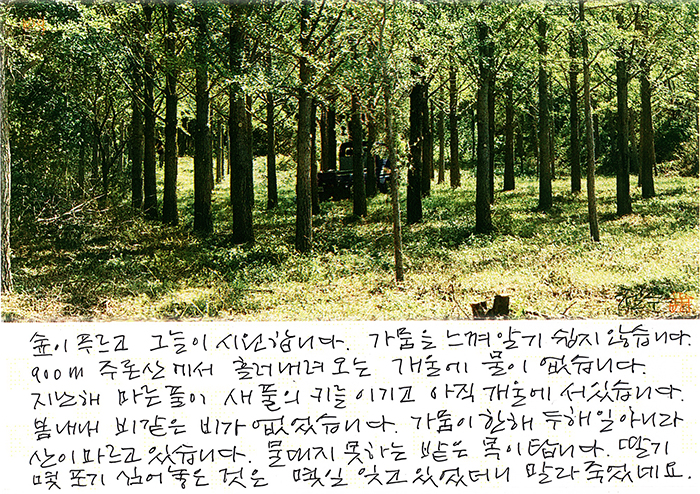 숲이 푸르고 그늘이 시원합니다. 가뭄을 느껴알기 쉽지 않습니다.
900m 주론산에서 흘러내려 오는 개울에 물이 없습니다.
지난해 마른풀이 새풀의 키를 이기고 아직 개울에 서있습니다.
봄내내 비같은 비가 없었습니다. 가뭄이 한해 두해 일 아니라
산이 마르고 있습니다. 물대지 못하는 밭은 목이탑니다. 딸기
몇 포기 심어 놓은 것은 몇일 잊고 있었더니 말라 죽었네요.